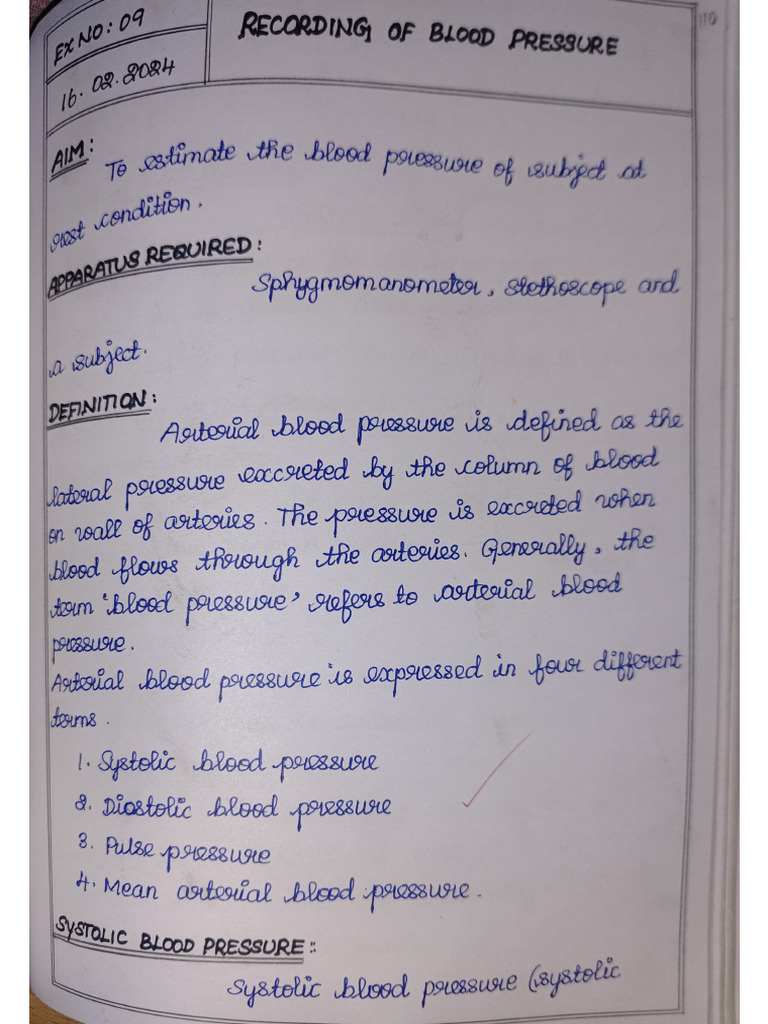 110
EX NO: 09
RECORDING OF BLOOD PRESSURE
16.02.2024
AIM:
To estimate the blood pressure of subject at
rest condition.
APPARATUS REQUIRED:
Sphygmomanometer, stethoscope and
a subject.
DEFINITION:
Arterial blood pressure is defined as the
lateral pressure excreted by the column of blood
on wall of arteries. The pressure is excreted when
blood flows through the arteries. Generally, the
term 'blood pressure' refers to arterial blood
pressure.
Arterial blood pressure is expressed in four different
terms.
1. Systolic blood pressure
2. Diastolic blood pressure
3. Pulse pressure
4. Mean arterial blood pressure.
SYSTOLIC BLOOD PRESSURE::
Systolic blood pressure (systolic